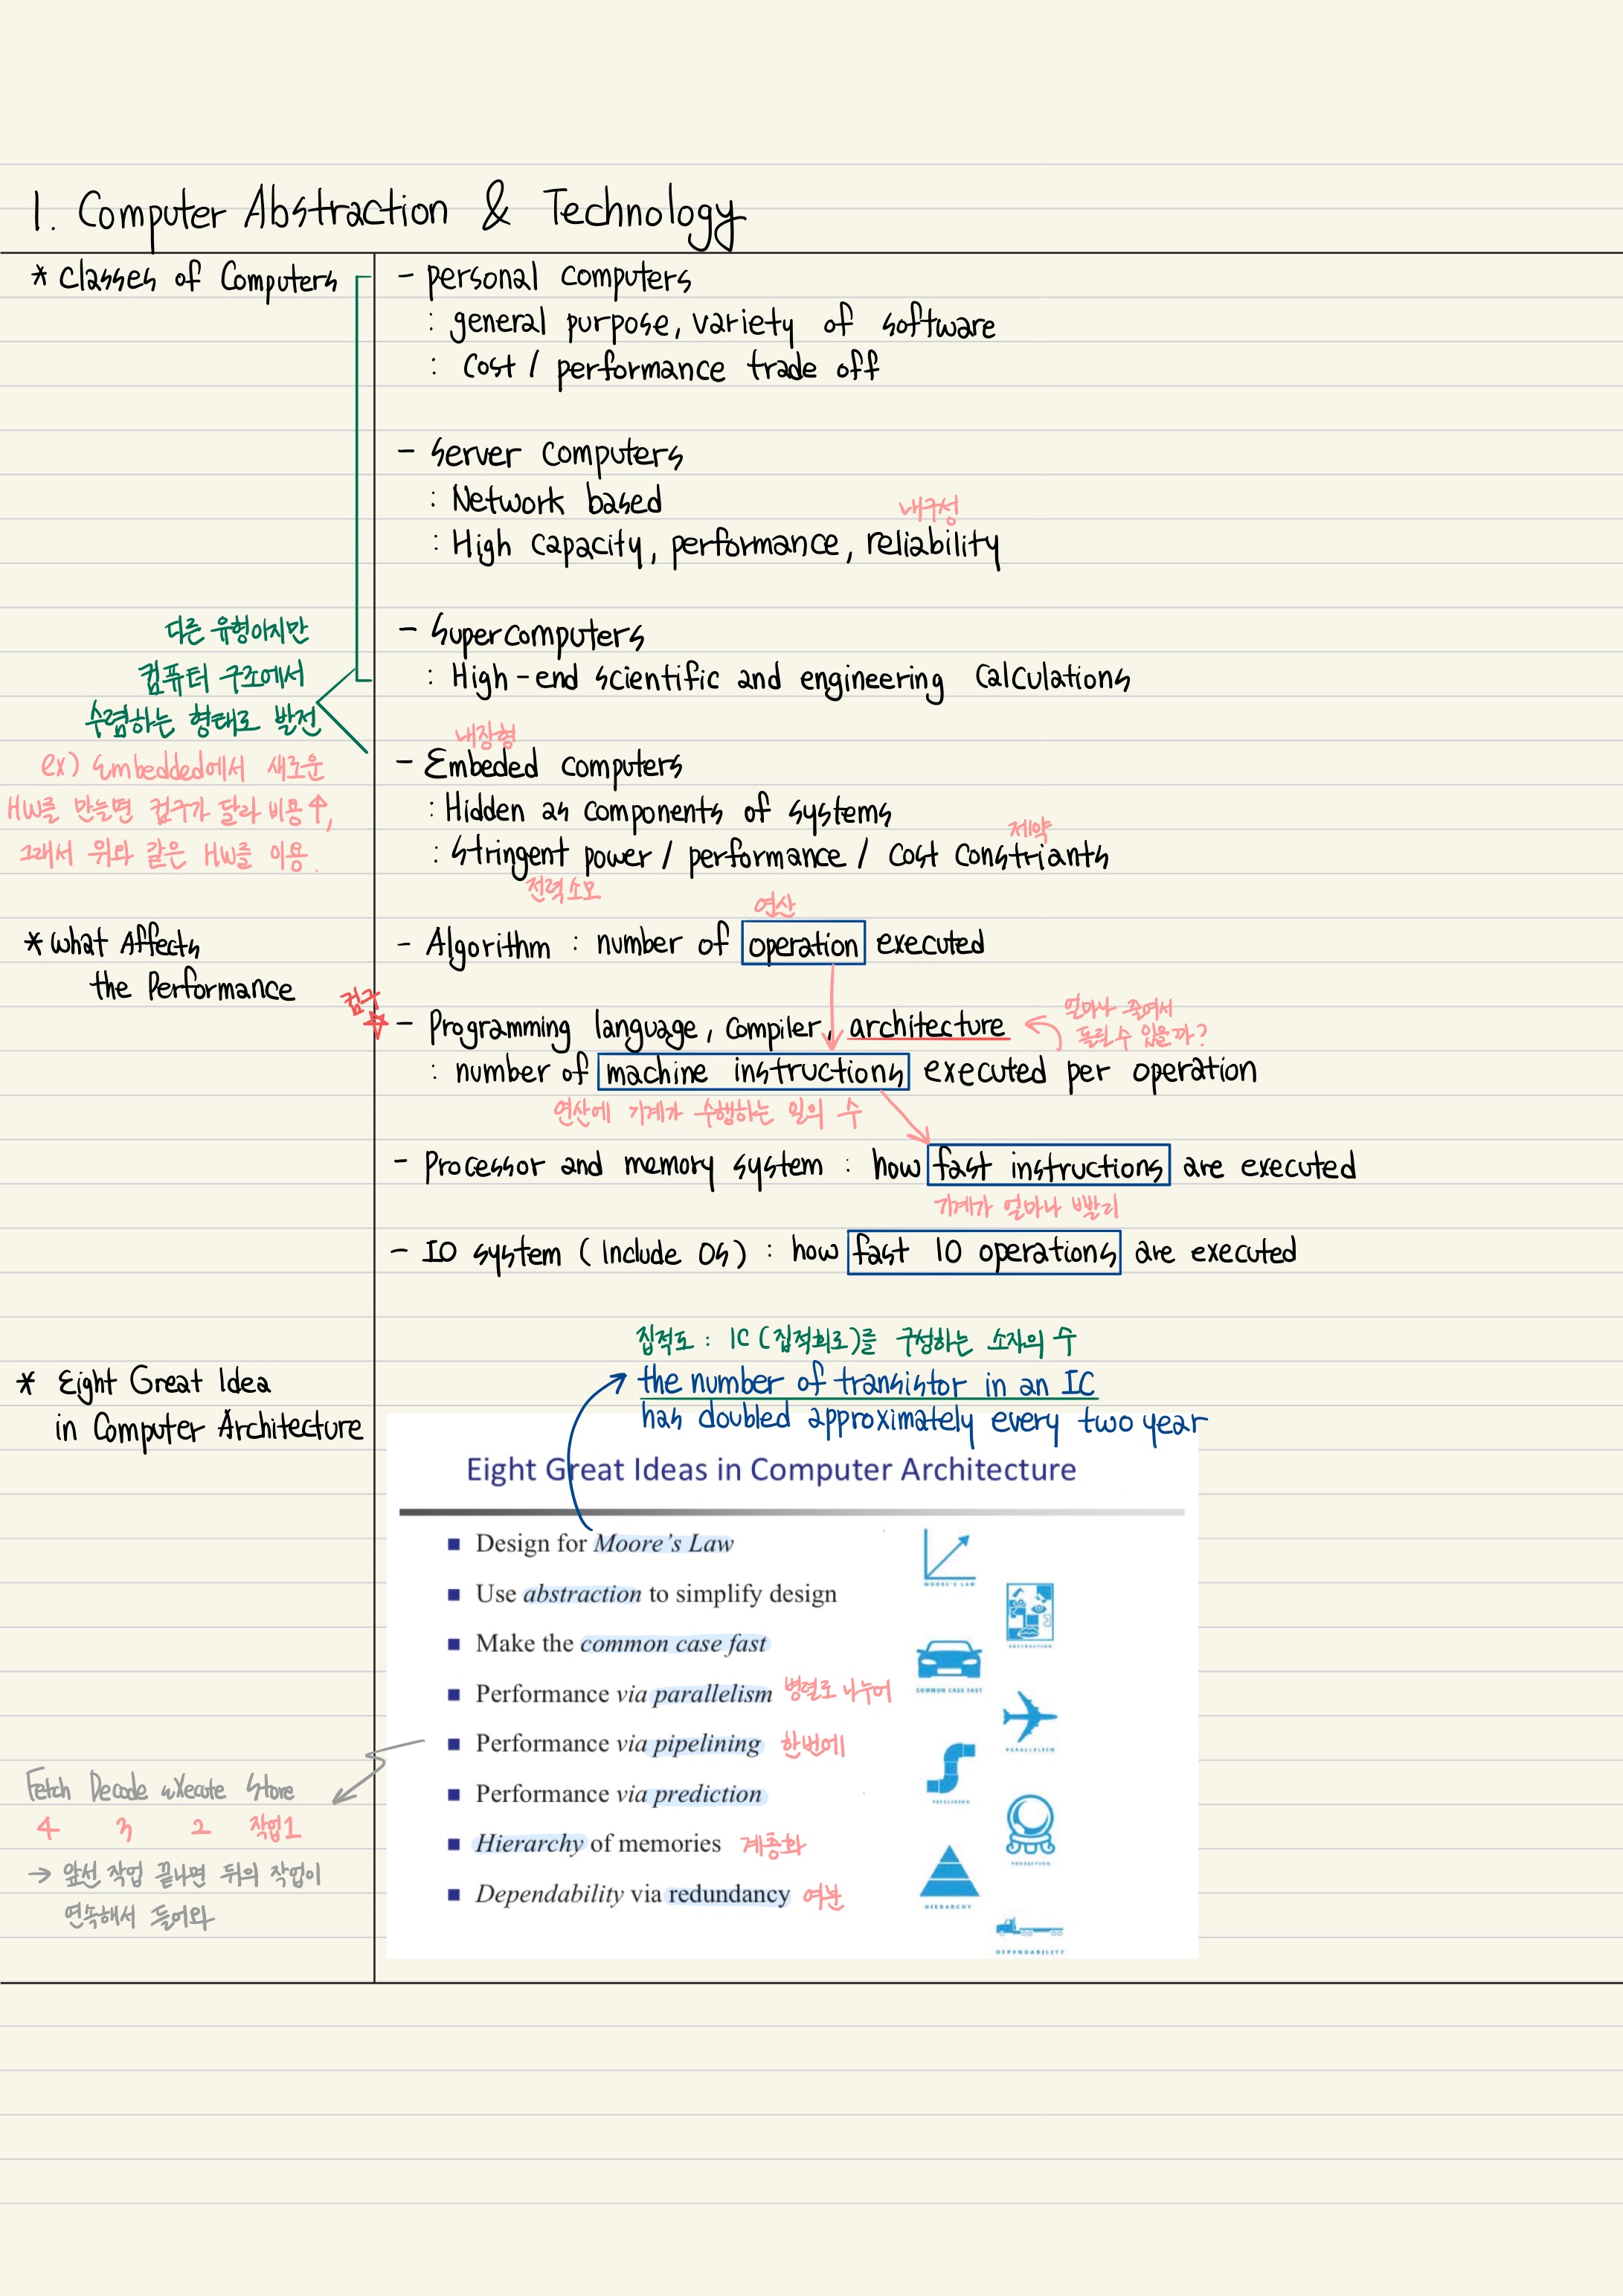 1. Computer Abstraction & Technology
* Classes of Computers
- personal computers
: general purpose, variety of software
: Cost / performance trade off
- Server computers
: Network based
내구성
: High capacity, performance, reliability
- Supercomputers
: High-end scientific and engineering Calculations
다른 유형이지만
컴퓨터 구조에서
수렴하는 형태로 발전
ex) Embedded에서 새로운
HW를 만들면 컴구가 달라 비용↑,
그래서 위와 같은 HW를 이용.
내장형
- Embeded computers
: Hidden as components of systems
제약
: Stringent power / performance / Cost Constriants
전력소모
* What Affects
the Performance
연산
- Algorithm : number of operation executed
컴구
☆ - Programming language, Compiler, architecture
얼마나 줄여서
돌릴 수 있을까?
: number of machine instructions executed per operation
연산에 기계가 수행하는 일의 수
- Processor and memory system : how fast instructions are executed
기계가 얼마나 빨리
- IO system (Include OS) : how fast IO operations are executed
* Eight Great Idea
in Computer Architecture
집적도 : IC (집적회로)를 구성하는 소자의 수
the number of transistor in an IC
has doubled approximately every two year
Eight Great Ideas in Computer Architecture
■ Design for Moore's Law
■ Use abstraction to simplify design
■ Make the common case fast
■ Performance via parallelism 병렬로 나누어
■ Performance via pipelining 한번에
■ Performance via prediction
■ Hierarchy of memories 계층화
■ Dependability via redundancy 여분
MOORE'S LAW
ABSTRACTION
COMMON CASE FAST
PARALLELISM
PIPELINING
PREDICTION
HIERARCHY
DEPENDABILITY
Fetch Decode eXecute Store
4 3 2 작업1
→ 앞선 작업 끝나면 뒤의 작업이
연속해서 들어와